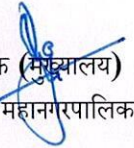 क (मुख्यालय)
महानगरपालिक